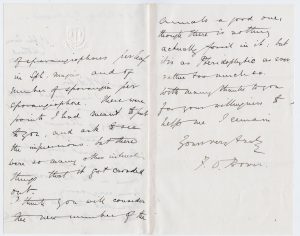 of sporangiophores
in and of
number of sporangia per
sporangiophore. These were
points I had meant to put
to you, and ask to see
the specimens, but there
were so many other interest
things that it got crowded
out.
I think you will consider
the new number of the
Annals a good one,
though there is nothing
actually fossil in it; but
as ever
rather too much so.
With many thanks to you
for your willingness to
help me I remain
Yours very truly
F. O. Bower